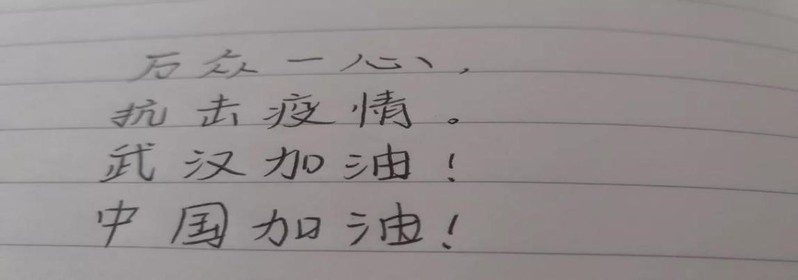 万众一心，
抗击疫情。
武汉加油！
中国加油！